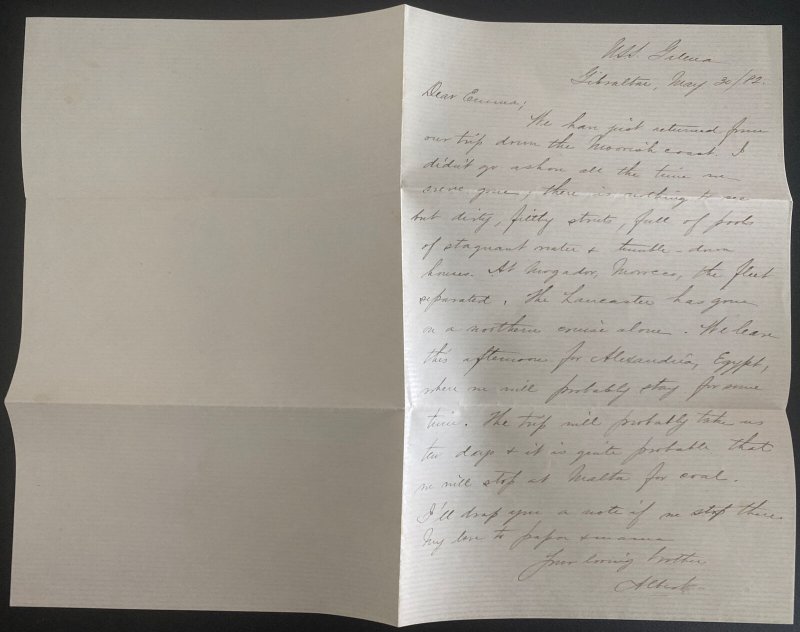 USS Galena
Gibraltar, May 30/82.
Dear Emma;
We have just returned from
our trip down the Moorish coast. I
didn't go ashore all the time we
were gone, there is nothing to see
but dirty, filthy streets, full of pools
of stagnant water & tumble-down
houses. At Mogador, Morocco, the fleet
separated. The Lancaster has gone
on a northern cruise alone. We leave
this afternoon for Alexandria, Egypt,
where we will probably stay for some
time. The trip will probably take us
ten days & it is quite probable that
we will stop at Malta for coal.
I'll drop you a note if we stop there.
My love to papa & mama
Your loving brother
Albert